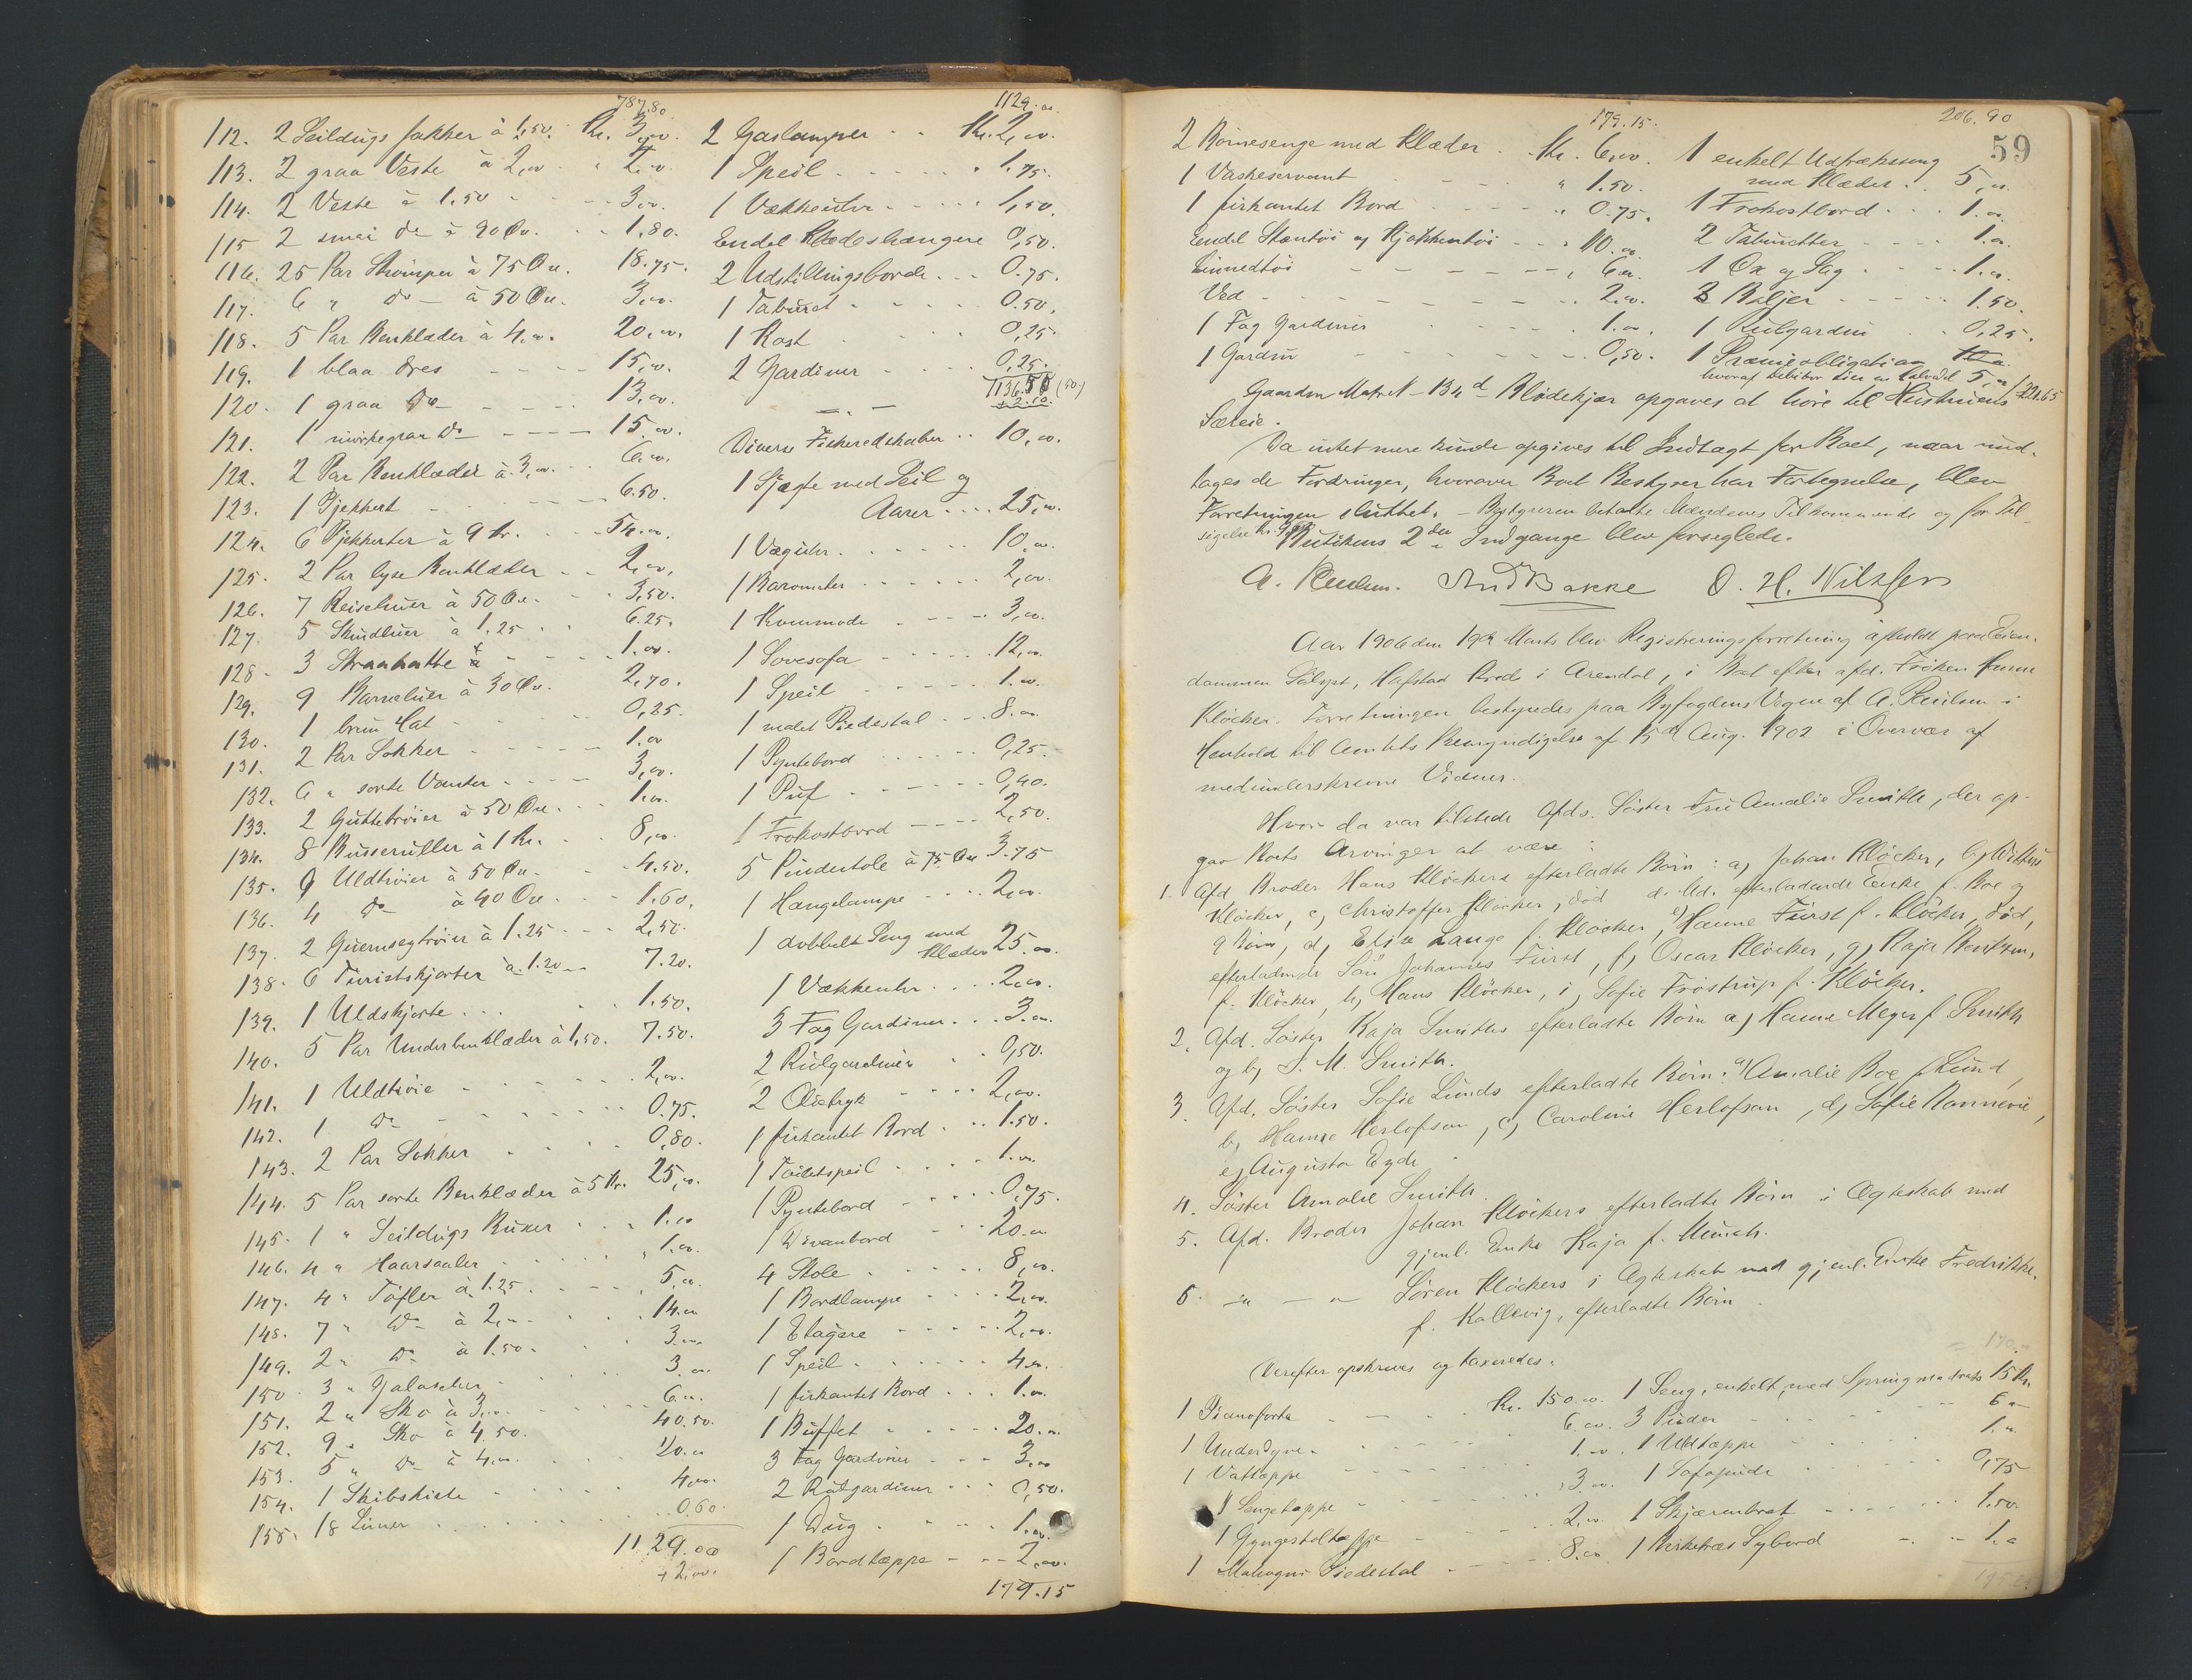 787.80
112. 2 Seildugs Jakker à 1,50. Kr. 3,00.
113. 2 graa Veste à 2,00 " 4,00
114. 2 Veste à 1.50 - - 3,00.
115 2 smai do à 90 Øre. - - 1.80.
116. 25 Par Strømper à 75 Øre. 18.75.
117. 6 " do - à 50 Øre. 3,00.
118. 5 Par Benklæder à 4,00. 20,00.
119. 1 blaa Dres - - - - 15,00.
120. 1 graa do - - - - 13,00.
121. 1 mørkegraa do - - - - 15,00.
122. 2 Par Benklæder à 3,00. - 6.00.
123. 1 Pjekkert - - - - 6.50.
124. 6 Pjekkerter à 9 Kr. - - 54.00.
125. 2 Par lyse Benklæder - - 2,00,
126. 7 Reisehuer à 50 Øre. - - 3,50.
127. 5 Skindluer à 1.25 - - 6.25.
128. 3 Straahatte - - - - 1.00.
129. 9 Barneluer à 30 Øre. - 2,70.
130. 1 brun Hat - - - - 0,25.
131. 2 Par Sokker - - - - 1.00
132. 6 " sorte Vanter - - - - 3,00.
133. 2 Guttetrøier à 50 Øre. - - 1.00.
134. 8 Busseruller à 1 Kr. - - 8,00.
135. 9 Uldtrøier à 50 Øre. - - 4.50.
136. 4 do à 40 Øre. - - 1.60,
137. 2 Guernseytrøier à 1.25 - - - 2,50.
138. 6 Turistskjorter à 1.20 - 7.20.
139. 1 Uldskjorte. - - - - 1.50.
140. 5 Par Underbenklæder à 1,50. 7.50.
141. 1 Uldtrøie - - - - 2,00.
142. 1 do - - - - 0.75.
143. 2 Par Sokker - - - - 0,80.
144. 5 Par sorte Benklæder à 5 Kr. 25,00.
145. 1 " Seildugs Buxer - - - 1.00
146. 4 " Haarsaaler - - - - 1.00.
147. 4 " Tøfler à 1.25 - - - - 5,00.
148. 7 " do - à 2,00 - - - 14.00
149. 2 " do - à 1.50 - - - 3.00
150. 3 " Galascher - - - - 3.00
151. 2 " Sko à 3,00. - - - - 6.00.
152. 9 " Sko à 4.50. - - 40.50.
153. 5 " do - à 4,00. - - 20.00
154. 1 Skibskiste - - - - 4,00.
155. 18 Liner - - - - 0.60.
1129.00
+ 2,00.
1129.00
2 Gaslamper - - Kr. 2,00.
1 Speil - - - - " 1,75.
1 Vækkeuhr - - - - 1,50.
Endel Klædeshængere 0,50.
2 Udstillingsborde - - - 0.75.
1 Taburet - - - - 0.50.
1 Kost - - - - 0,25.
2 Gardiner - - - - 0,25.
1136.50 (50)
+ 2.00.
Diverse Fiskeredskaber - - 10,00.
1 Sjægte med Seil og
Aarer - - - - 25,00.
1 Væguhr. - - - - 10.00.
1 Barometer - - - - 2,00.
1 Kommode - - - - 3,00.
1 Sovesofa - - - - 12,00.
1 Speil - - - - 1.00.
1 malet Piedestal - - - 8.00
1 Pyntebord - - - - 0,25.
1 Puf - - - - 0,40.
1 Frokostbord - - - - 2,50.
5 Pindestole à 75 Øre 3.75
1 Hængelampe - - - - 2,00.
1 dobbelt Seng med
Klæder 25,00.
1 Vækkeuhr. - - - - 2,00.
3 Fag Gardiner. - - - 3.00.
2 Rulgardiner - - 0,50.
2 Olietryk - - - - 2,00.
1 firkantet Bord - - - 1.50.
1 Toiletspeil - - - - 1.00.
1 Pyntebord - - - - 0,75.
1 Divanbord - 20.00
4 Stole - - - - 8,00.
1 Bordlampe - - - - 2,00.
1 Etagere - - - - 2,00.
1 Speil - - - - 4,00.
1 firkantet Bord - - - 1.00.
1 Buffet - - - - 20.00
3 Fag Gardiner - - - 3.00
2 Rulgardiner - - - 0,50.
1 Dug - - - - 1.00.
1 Bordtæppe - - - 2,00.
179.15
59
179.15.
2 Børnesenge med Klæder. Kr. 6,00.
1 Vaskeservant - - - - " 1.50.
1 firkantet Bord - - - - " 0.75.
Endel Stentøi og Kjøkkentøi - - " 10.00
Linnedtøi - - - - " 6.00.
Ved - - - - 2.00.
1 Fag Gardiner - - - - 1.00.
1 Gardin - - - - 0,50.
206.90
1 enkelt Udtrækseng
med Klæder. - 5,00.
1 Frokostbord - - - 1.00.
2 Taburetter - - - - 1.00.
1 Øx og Sag - - - - 1.00.
3 Baljer - - - - 1.50.
1 Rulgardin - - 0,25.
1 Præmieobligation 10.00
hvoraf Debitor eier en halvdel 5,00 / 221.65
Gaarden Matr. N - 134 d - Blødekjær opgaves at høre til Hustruens
Særeie.
Da intet mere kunde opgives til Indtægt for Boet, naar und-
tages de Fordringer, hvorover Boet Bestyrer har Fortegnelse, blev
Forretningen sluttet. - Bestyreren betalte Mændenes Tilkommende og for Til-
sigelse Kr. Butikens 2 de Indgange blev forseglede.
A. Paulsen. And Bakke O. H. Nilssen
Aar 1906 den 19de Marts blev Registreringsforretning afholdt paa Eien-
dommen Sølyst, Hafstad Bred i Arendal, i Boet efter afd. Frøken Hanne
Kløcker. Forretningen bestyredes paa Byfogdens Vegne af A. Paulsen i
Henhold til Amtets Bemyndigelse af 15de Aug. 1902 i Overvær af
medunderskrevne Vidner.
Hvor da var tilstede Afds. Søster Fru Amalie Smith, der op-
gav Boets Arvinger at være:
1. Afd. Broder Hans Kløckers efterladte Børn: a) Johan Kløcker, b)
Kløcker, c) Christoffer Kløcker, død efterladende Enke f. Boe og
9 Børn, d) Elise Lange f. Kløcker, e) Hanne Fürst f. Kløcker, død,
efterladende Søn Johannes Fürst, f) Oscar Kløcker, g) Kaja
f. Kløcker, h) Hans Kløcker, i) Sofie Frøstrup f. Kløcker.
2. Afd. Søster Kaja Smiths efterladte Børn a) Hanne Meyer f. Smith
og b) S. M. Smith.
3 Afd. Søster Sofie Lunds efterladte Børn: a) Amalie Boe f. Lund,
b) Hanne Herlofson, c) Caroline Herlofson, d) Sofie Ronnevie,
e) Augusta Eyde
4. Søster Amalie Smith.
5. Afd. Broder Johan Kløckers efterladte Børn i Ægteskab med
gjenl. Enke Kaja f. Munch.
6. - " - - " - Søren Kløckers i Ægteskab med gjenl. Enke Fredrikke,
f. Kallevig, efterladte Børn
Derefter opskreves og taxeredes:
1 Pianoforte - - - Kr. 150.00.
1 Underdyne - - - 6.00.
1 Vattæppe - - - 1.00.
1 Sengetæppe - - - 3.00.
1 Gyngestoltæppe - - - 2,00.
1 Mahogni Piedestal - - - 8.00.
170.
1 Seng, enkelt, med Springmadrats 15 Kr.
3 Puder - - - - 6 00
1 Uldtæppe - - - - 1.00
1 Sofapude - - - - 0,75
1 Skjærenbret - - - - 1.50.
1 Birketræs Sybord - - - 1.00